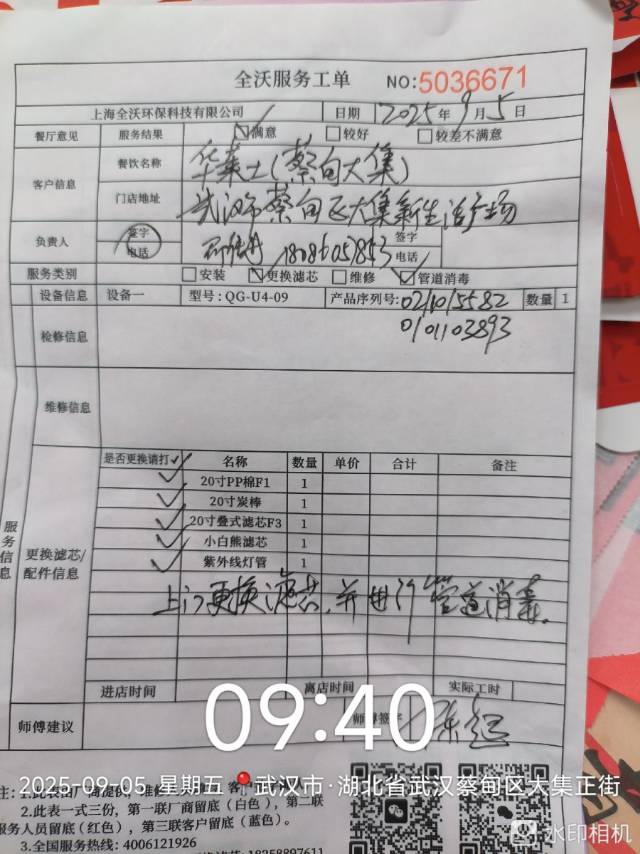 全沃服务工单 NO:5036671
上海全沃环保科技有限公司 日期 2025年9月5日
餐厅意见 服务结果 ☑满意 □较好 □较差不满意
客户信息 餐饮名称 华莱士(蔡甸大集)
门店地址 武汉市蔡甸区大集新生活广场
负责人 签字 电话 18086057853 签字 电话
服务类别 □安装 ☑更换滤芯 □维修 ☑管道消毒
设备信息 设备一 型号:QG-U4-09 产品序列号: 0211015582 数量 1
0101103893
检修信息
维修信息
是否更换请打✓ 名称 数量 单价 合计 备注
✓ 20寸PP棉F1 1
✓ 20寸炭棒 1
✓ 20寸叠式滤芯F3 1
✓ 小白熊滤芯 1
✓ 紫外线灯管 1
服务信息 更换滤芯/配件信息
上门更换滤芯,并进行管道消毒.
进店时间 离店时间 实际工时
师傅建议 师傅签字
09:40
2025-09-05 星期五 武汉市·湖北省武汉蔡甸区大集正街
2.此表一式三份，第一联厂商留底（白色），第二联
服务人员留底（红色），第三联客户留底（蓝色）。
3.全国服务热线: 4006121926
水印相机